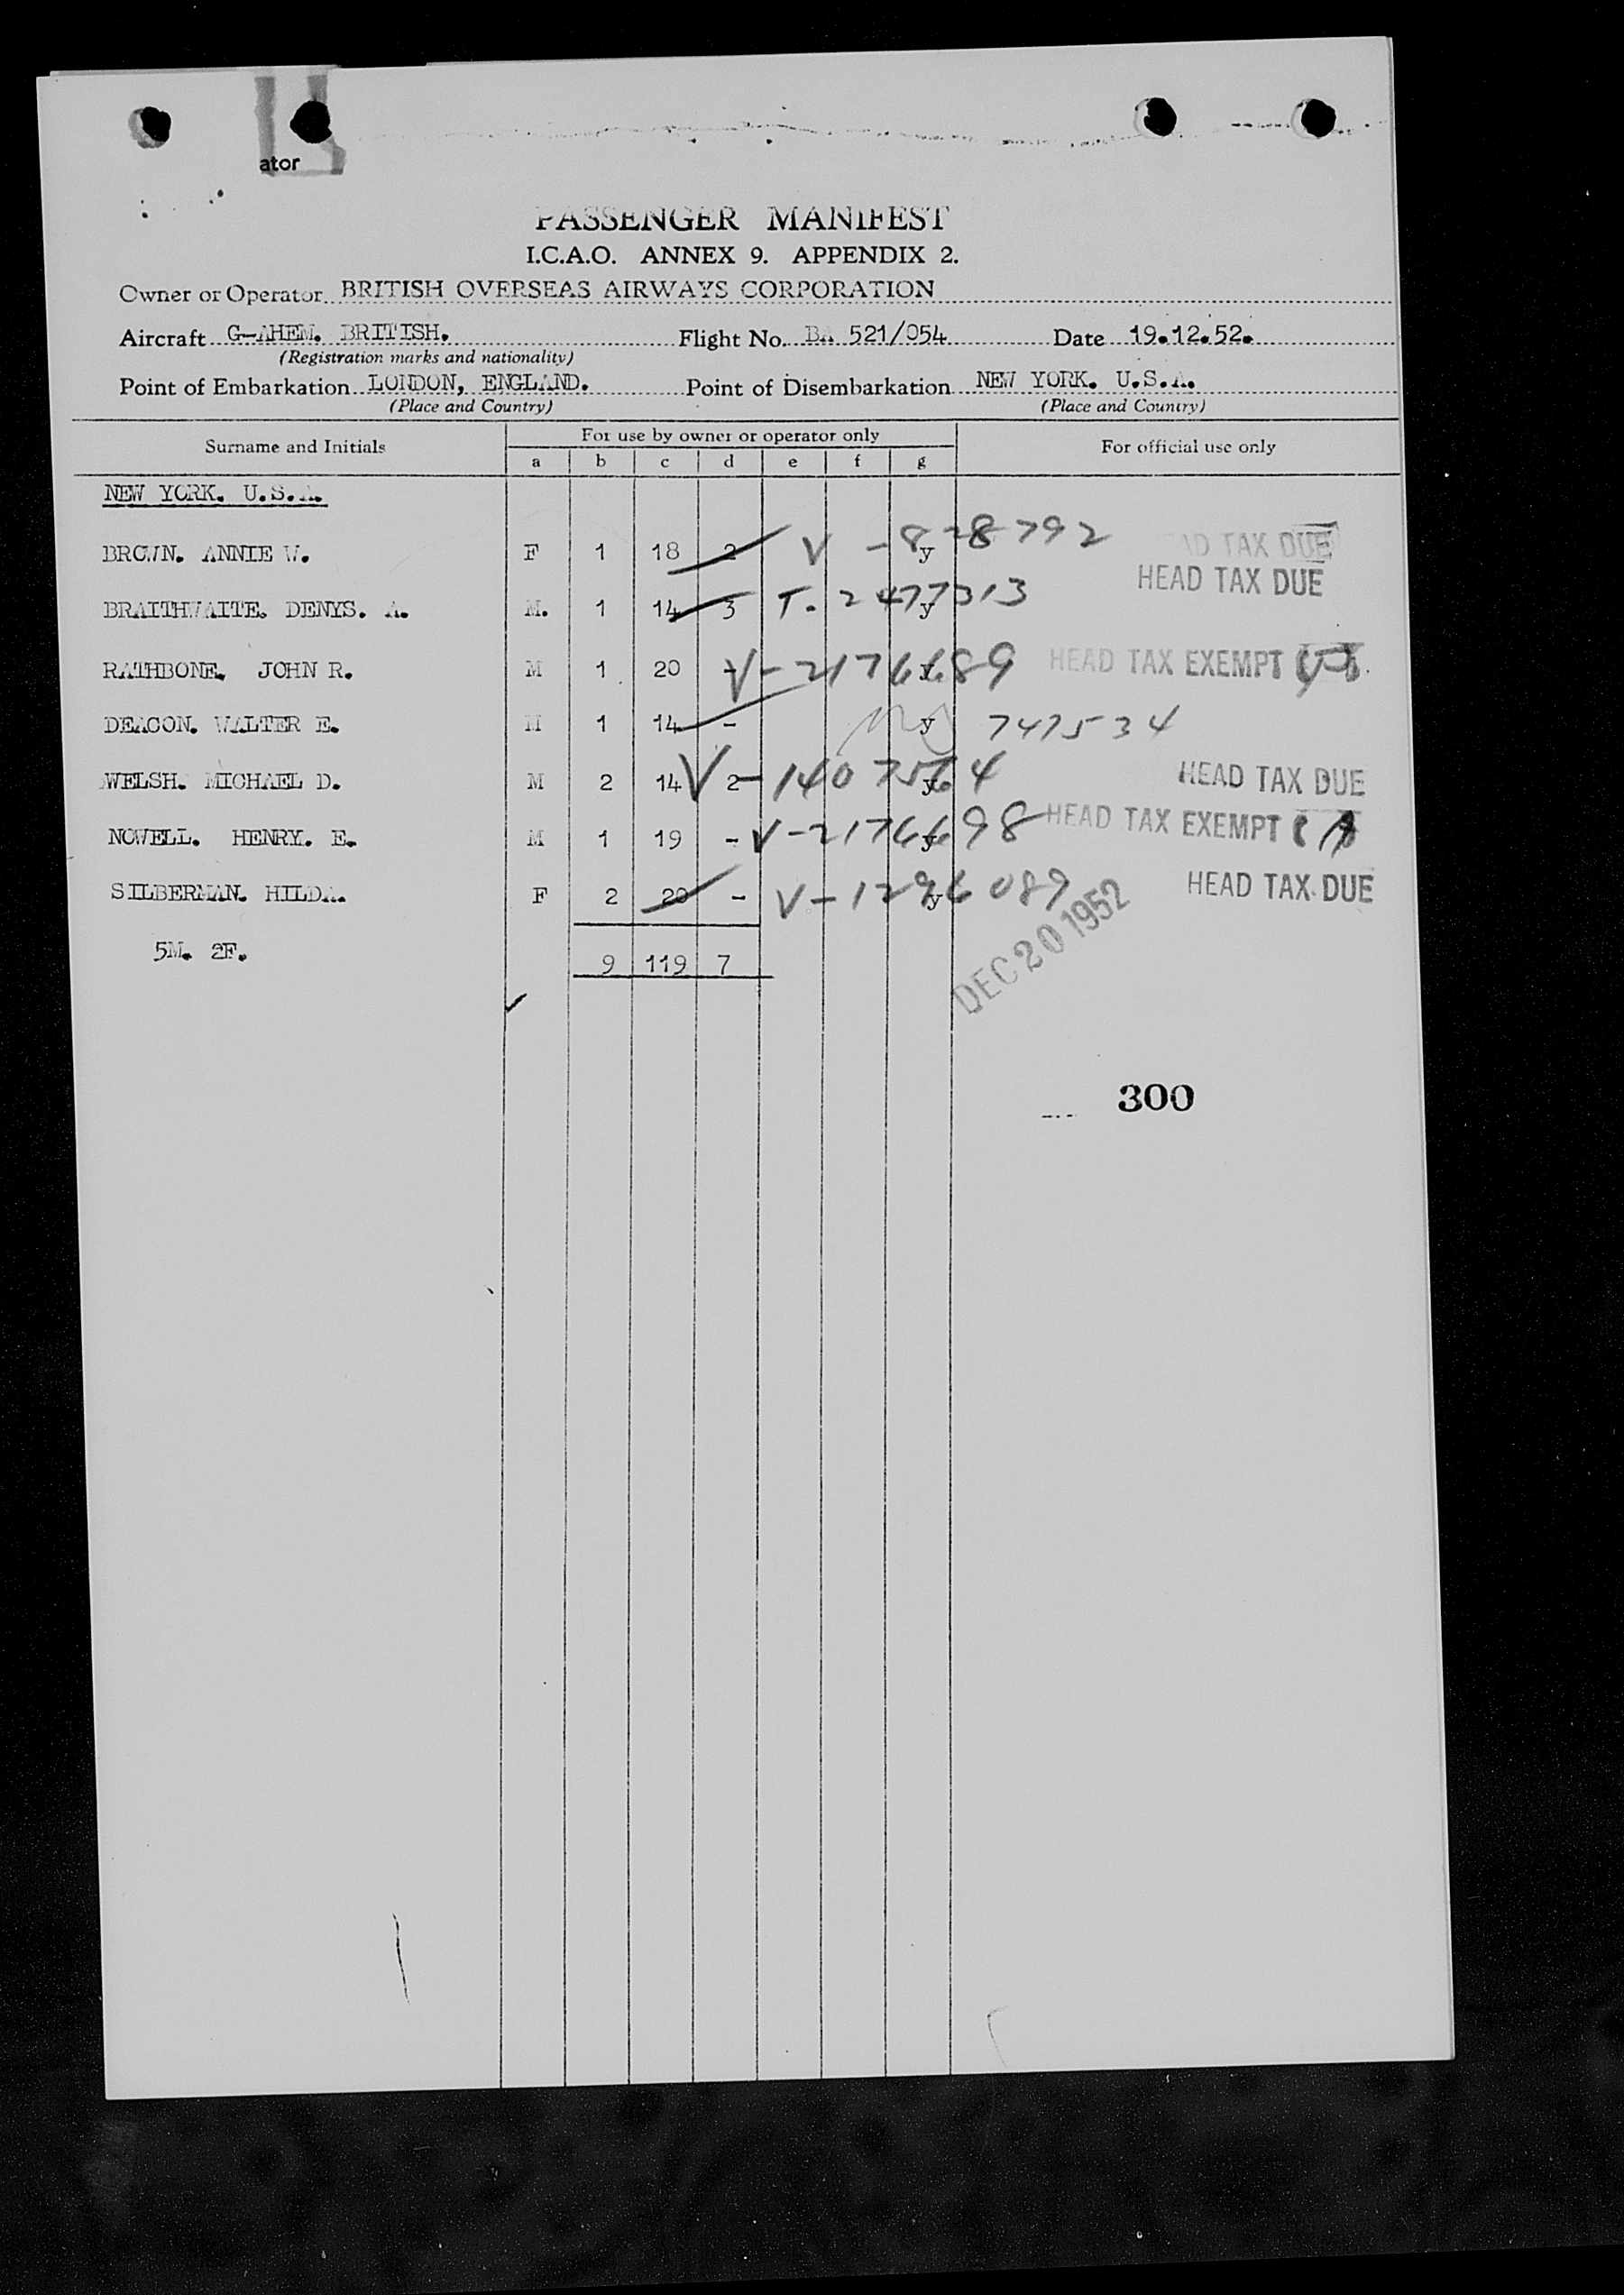 ator
PASSENGER MANIFEST
I.C.A.O. ANNEX 9. APPENDIX 2.
Owner or Operator BRITISH OVERSEAS AIRWAYS CORPORATION
Aircraft G-AHEM. BRITISH. Flight No. BA 521/054 Date 19.12.52.
(Registration marks and nationality)
Point of Embarkation LONDON, ENGLAND. Point of Disembarkation NEW YORK. U.S.A.
(Place and Country) (Place and Country)
Surname and Initials For use by owner or operator only For official use only
a b c d e f g
NEW YORK. U.S.A.
BROWN. ANNIE W. F 1 18 2 V - 828792 y HEAD TAX DUE
HEAD TAX DUE
BRAITHWAITE. DENYS. A. M. 1 14 3 T. 2477313 y
RATHBONE. JOHN R. M 1 20 - V-2176689 y HEAD TAX EXEMPT
DEACON. WALTER E. M 1 14 - y 747534
WELSH. MICHAEL D. M 2 14 2 V-1407564 y HEAD TAX DUE
NOWELL. HENRY. E. M 1 19 - V-2176698 y HEAD TAX EXEMPT
SILBERMAN. HILDA. F 2 20 - V-1296089 y HEAD TAX DUE
DEC 20 1952
5M. 2F. 9 119 7
300